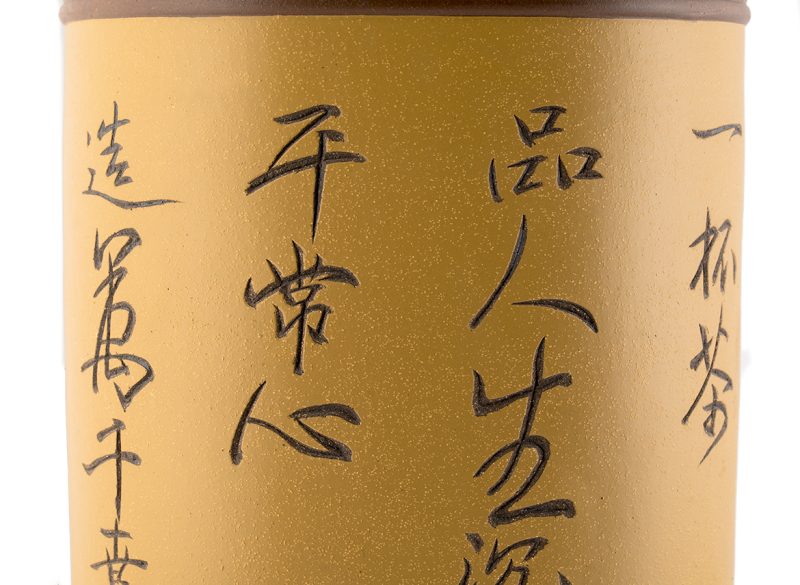 一杯茶
品人生沉
平常心
造萬千